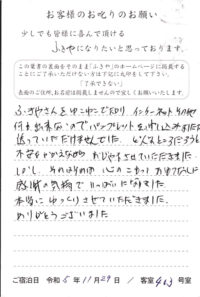 お客様のお叱りのお願い
少しでも皆様に喜んで頂ける
ふきやになりたいと思っております。
この葉書の表面をそのまま「ふきや」のホームページに掲載する
ことにご了承いただけない方は下記に丸印をして下さい。
（ 了承できない ）
表面のご住所、お名前は掲載しませんので宜しくお願いいたします。
ふきやさんを インターネット
何も出来ないので パンフレットを
送っていただけませんでした。 どんなところだろうと
不安 させていただきました
しかし、 心のこもったおもてなしに
感謝の気持で いっぱいに なりました
本当に ゆっくりさせていただきました。
ありがとうございました
ご宿泊日 令和5年11月29日 / 客室 号室